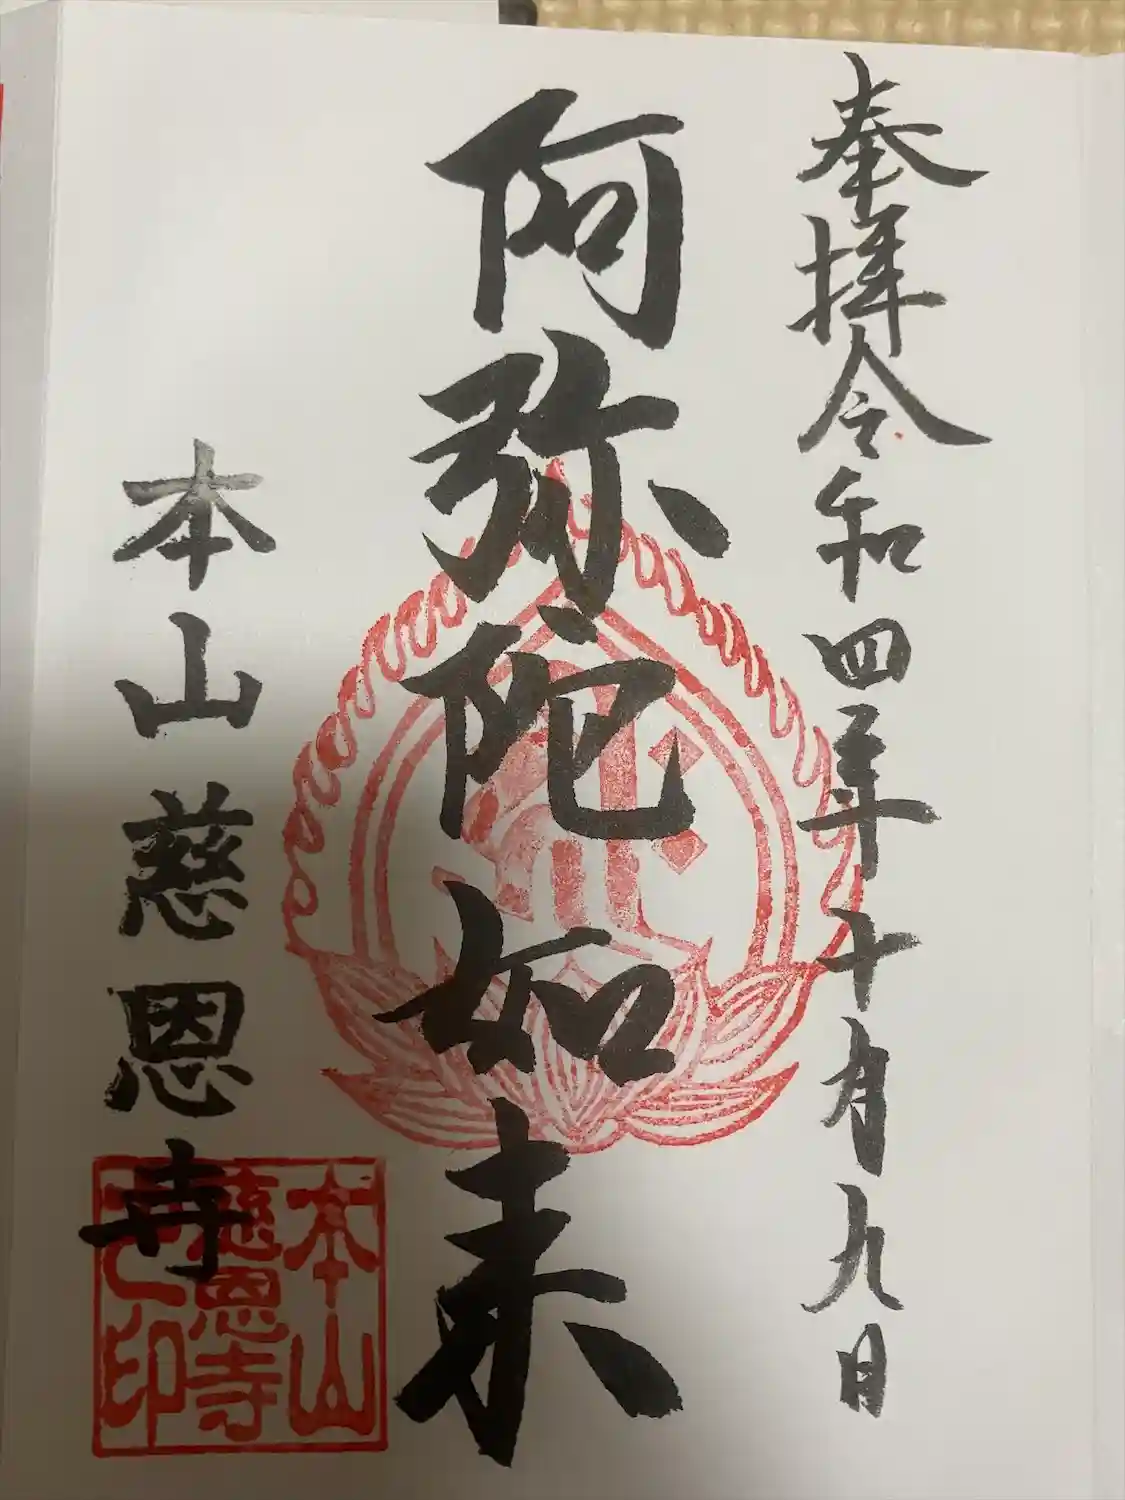 奉拝令和四年十月九日
阿弥陀如来
本山慈恩寺
本山
慈恩寺
之印